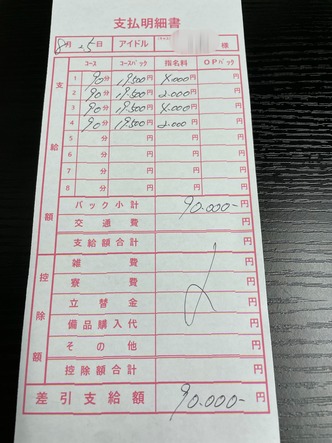 支払明細書
8月25日 アイドル 様
コース コースバック 指名料 OPバック
支給額
1 90分 19500円 4.000円 円
2 90分 19.500円 2.000円 円
3 90分 19500円 4.000円 円
4 90分 19500円 2.000円 円
5 分 円 円 円
6 分 円 円 円
7 分 円 円 円
8 分 円 円 円
バック小計 90.000-円
交通費 円
支給額合計 円
控除額
雑費 円
寮費 円
立替金 円
備品購入代 円
その他 円
控除額合計 円
差引支給額 90.000-円